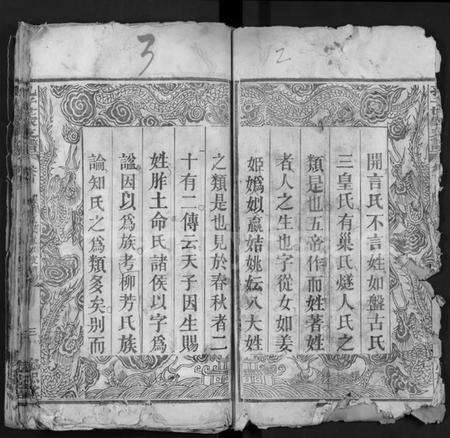 開言氏不言姓如盤古氏
三皇氏有巢氏燧人氏之
類是也五帝作而姓著姓
者人之生也字從女如姜
姬嬀姒嬴姞姚妘八大姓
之類是也見於春秋者二
十有二傳云天子因生賜
姓胙土命氏諸侯以字爲
謚因以爲族考柳芳氏族
論知氏之爲類多矣别而
3
2